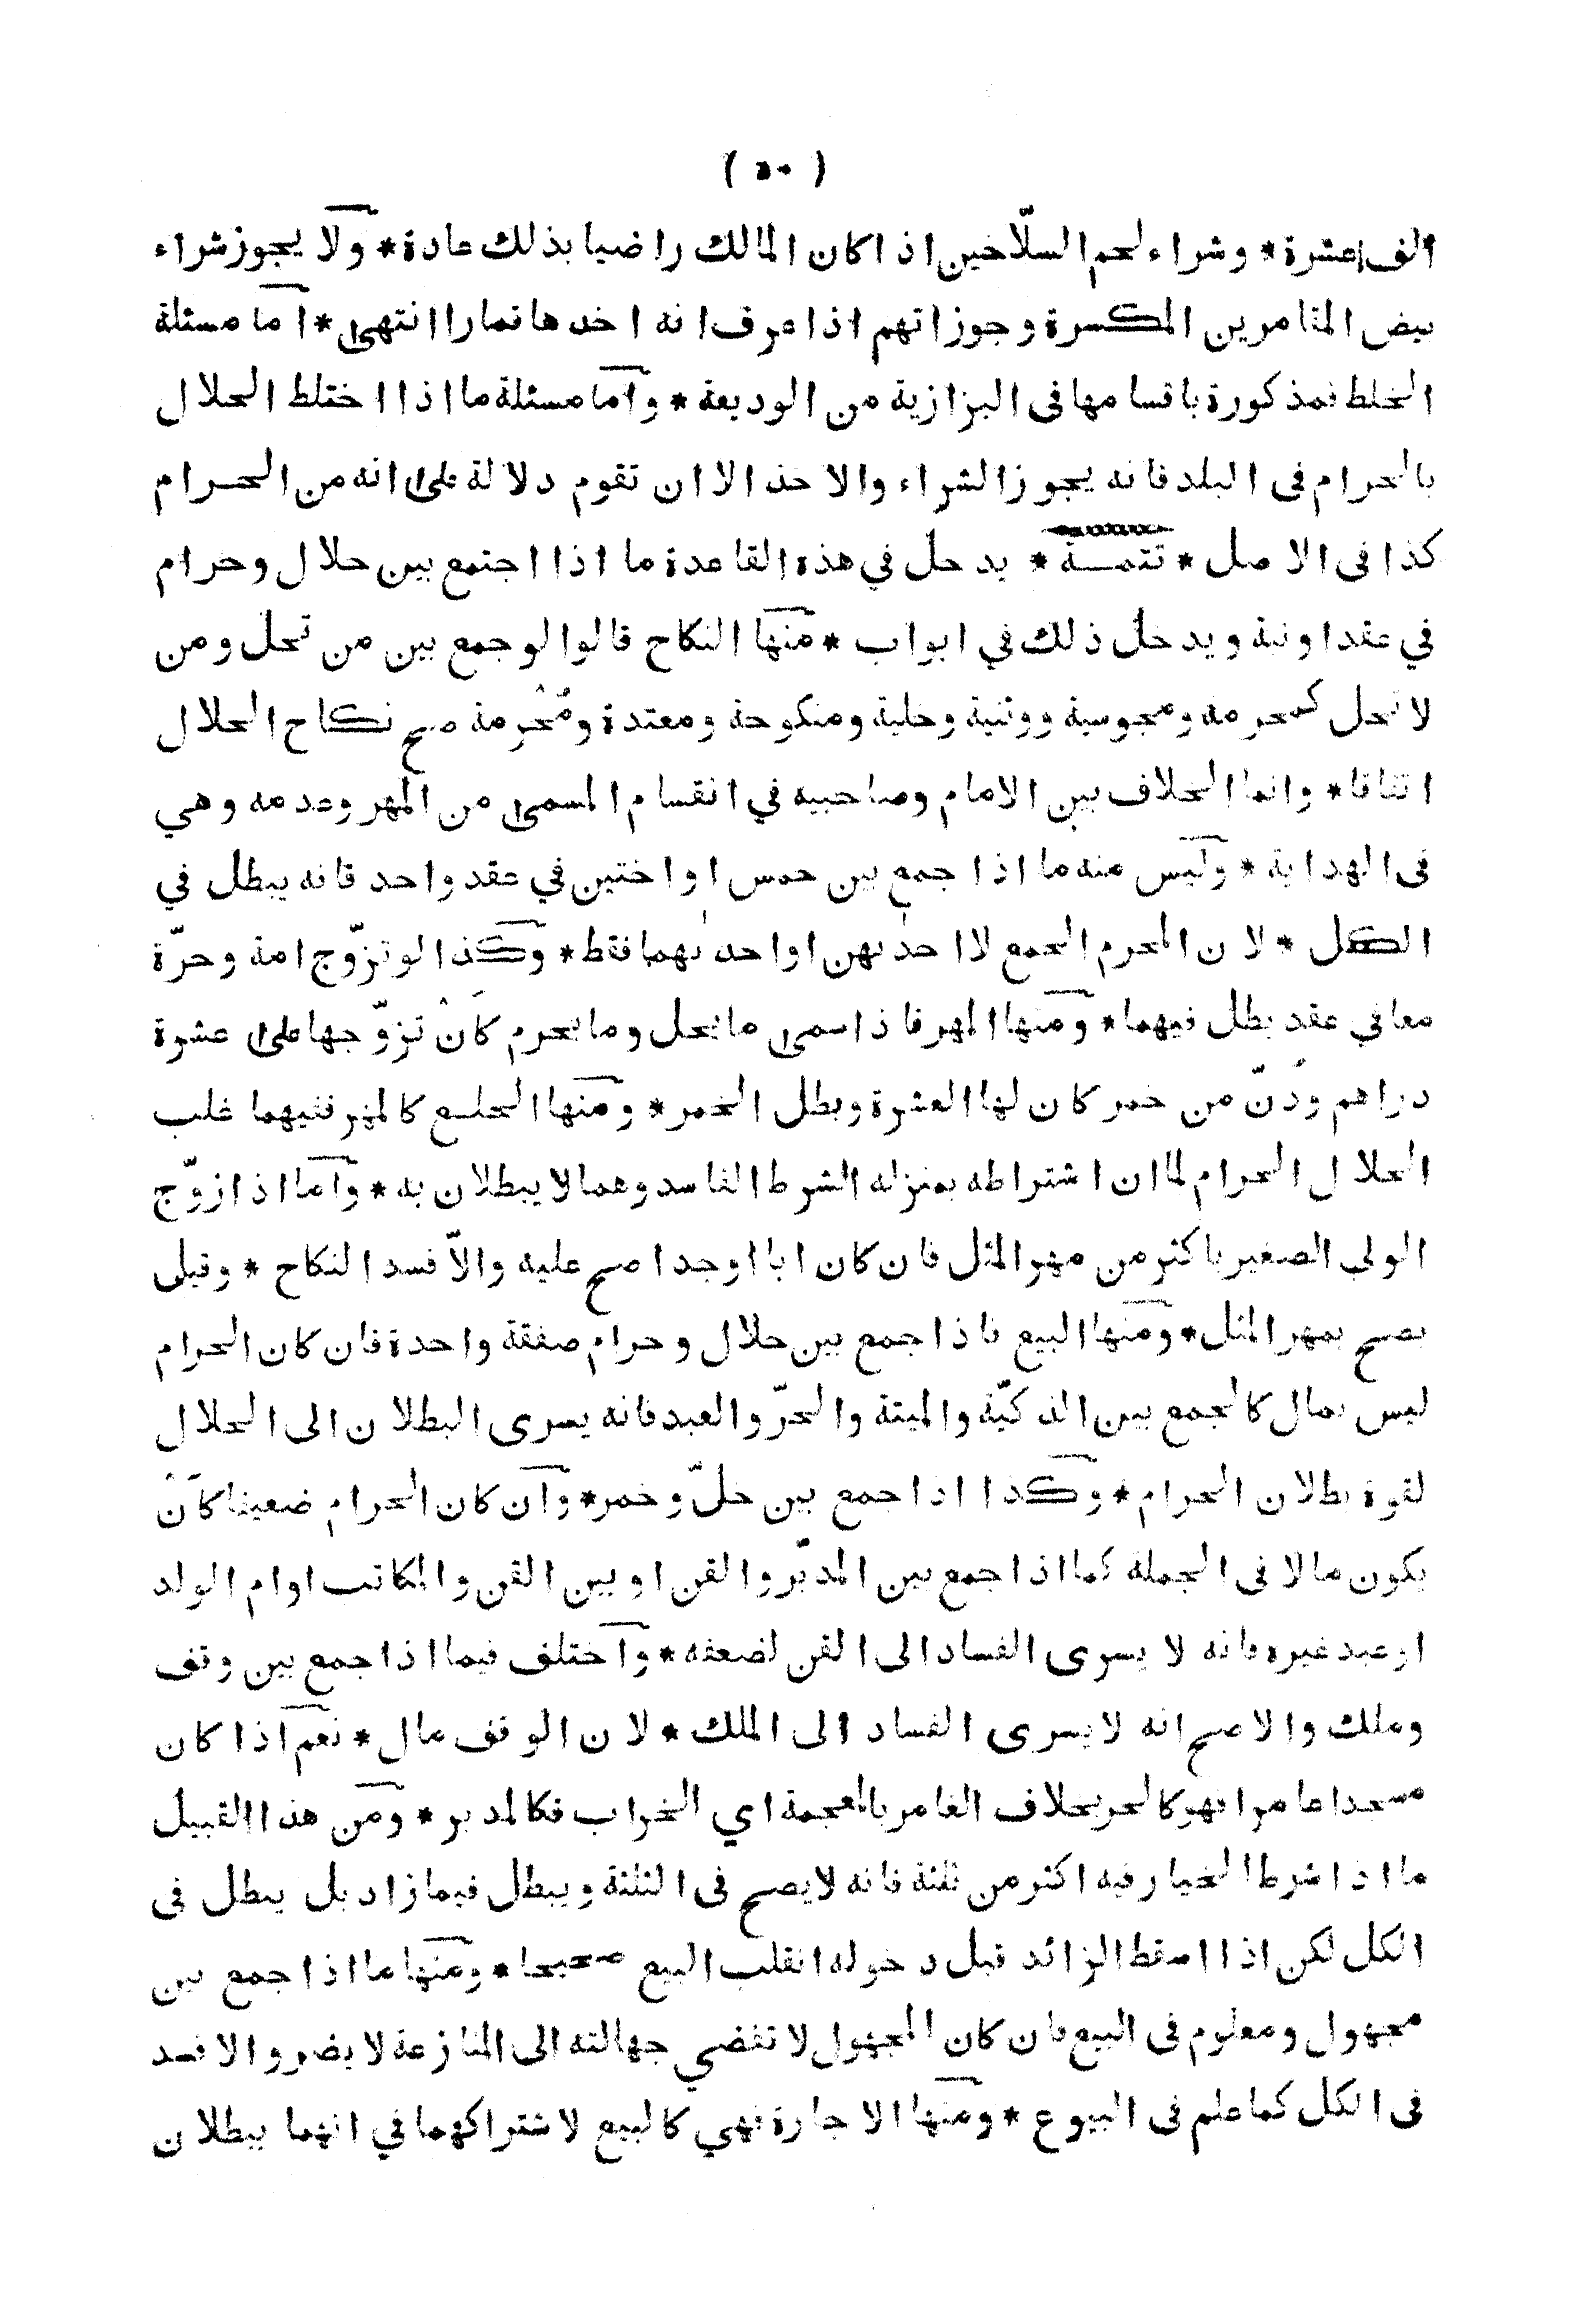 ( ٥٠ )
الف عشرة * وشراء لحم السلّاخين اذا كان المالك راضيا بذلك عادة * ولا يجوز شراء
بيض المقامرين المكسرة وجوزاتهم اذا عرف انه اخذها قمارا انتهى * اما مسئلة
الخلط فمذكورة باقسامها فى البزازية من الوديعة * واما مسئلة ما اذا اختلط الحلال
بالحرام فى البلد فانه يجوز الشراء والاخذ الا ان تقوم دلالة على انه من الحرام
كذا فى الاصل * تتمة * يدخل في هذه القاعدة ما اذا اجتمع بين حلال وحرام
في عقد او نية ويدخل ذلك في ابواب * منها النكاح قالوا لو جمع بين من تحل ومن
لا تحل كمحرمه ومجوسية ووثنية وخلية ومنكوحة ومعتدة ومُحْرِمة صح نكاح الحلال
اتفاقا * وانما الخلاف بين الامام وصاحبيه في انقسام المسمى من المهر وعدمه وهي
فى الهداية * وليس منه ما اذا جمع بين خمس او اختين في عقد واحد فانه يبطل في
الكل * لان المحرم الجمع لا احدٰىهن او احدٰىهما فقط * وكذا لو تزوّج امة وحرّة
معا في عقد بطل فيهما * ومنها المهر فاذا سمى ما يحل وما يحرم كَاَنْ تزوّجها على عشرة
دراهم ودَنّ من خمر كان لها العشرة وبطل الخمر * ومنها الخلع كالمهر ففيهما غلب
الحلال الحرام لما ان اشتراطه بمنزله الشرط الفاسد وهما لا يبطلان به * واما اذا زوّج
الولى الصغير باكثر من مهر المثل فان كان ابا او جدا صح عليه والّا فسد النكاح * وقيل
يصح بمهر المثل * ومنها البيع فاذا جمع بين حلال وحرام صفقة واحدة فان كان الحرام
ليس بمال كالجمع بين الذكيّة والميتة والحرّ والعبد فانه يسرى البطلان الى الحلال
لقوة بطلان الحرام * وكذا اذا جمع بين خلّ وخمر * وان كان الحرام ضعيفا كَاَنْ
يكون مالا فى الجملة كما اذا جمع بين المدبّر والقن او بين القن والمكاتب او ام الولد
او عبد غيره فانه لا يسرى الفساد الى القن لضعفه * واختلف فيما اذا جمع بين وقف
وملك والاصح انه لا يسرى الفساد الى الملك * لان الوقف مال * نعم اذا كان
مسجدا عامرا فهو كالحر بخلاف الغامر بالمعجمة اي الخراب فكالمدبر * ومن هذا القبيل
ما اذا شرط الخيار فيه اكثر من ثلثة فانه لا يصح فى الثلثة ويبطل فيما زاد بل يبطل فى
الكل لكن اذا اسقط الزائد قبل دخوله انقلب البيع صحيحا * ومنها ما اذا جمع بين
مجهول ومعلوم فى البيع فان كان المجهول لا تفضي جهالته الى المنازعة لا يضر والا فسد
فى الكل كما علم فى البيوع * ومنها الاجارة فهي كالبيع لاشتراكهما في انهما يبطلان